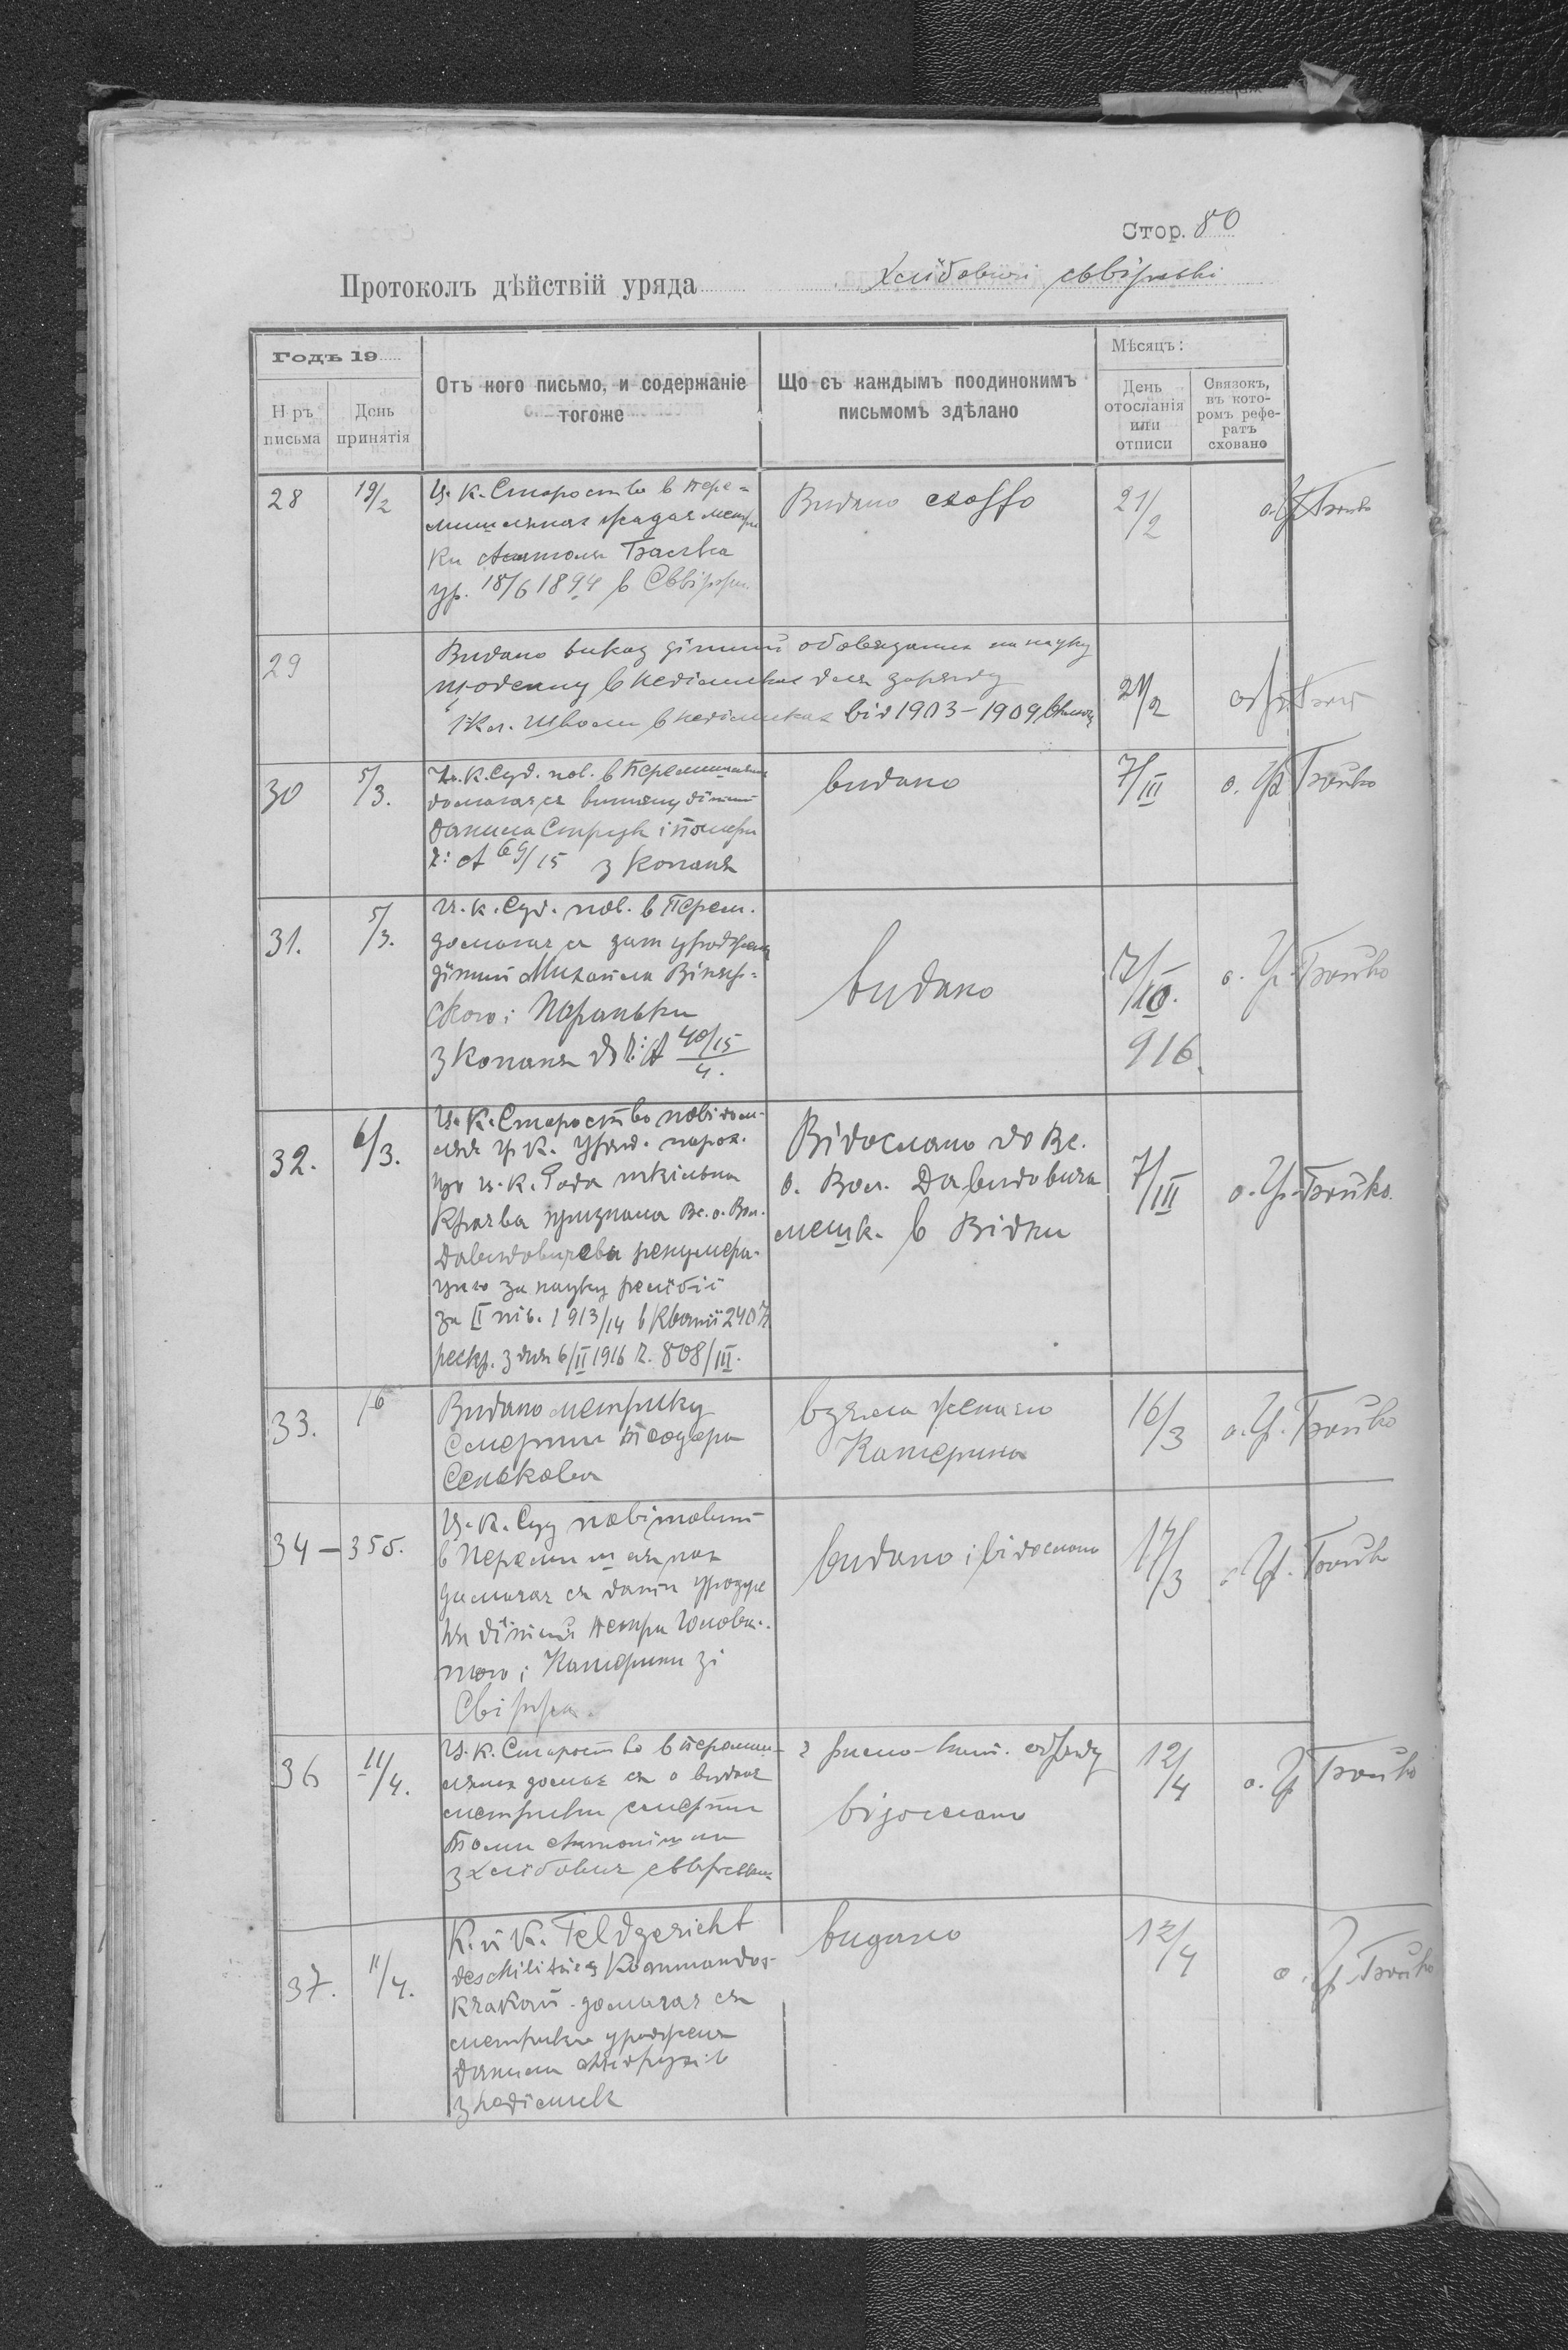 Стор. 80
Протоколъ дѣйствій уряда Хлїбовичі свірскі
Годъ 19
Н-ръ письма
День принятія
Отъ кого письмо, и содержаніе тогоже
Що съ каждымъ поодинокимъ письмомъ здѣлано
Мѣсяцъ:
День отосланія или отписи
Связокъ, въ кото-ромъ рефе-ратъ сховано
28 19/2
Ц. к. Староство в Пере-
мишлянах жадає метри
ки Анатоля
ур. 18/6 1894 в
Видано
21/2
29
Видано виказ дїтий обовязаних на науку
щоденну в Недїлисках для заряду
1 кл. школи в Недїлисках від 1903-1909
21/2
30 5/3.
Ц. к. Суд. пов. в Перемишлянах
домагає ся дїтий
Данила Струк і
ч: A 69/15 з Копаня
видано
7/III
о. Гр Бойко
31. 5/3.
Ц. к. Суд. пов. в Перем.
домагає ся дат уродженя
дїтий Михайла
ского і Параньки
з Копаня до ч: A 40/15
4.
видано
7/III.
916.
о. Гр. Бойко
32. 6/3.
Ц. к. Староство повідом-
ляє гр. к. Уряд. парох.
що ц. к. Рада шкільна
Краєва признала Вс. о. Вол.
Давидовичеви ремунера-
цию за науку релїґії
за II пів. 1913/14 в квотї 240 К
рескр. з дня 6/II 1916 ч. 808/III.
Відослано до Вс.
о. Вол. Давидовича
мешк. в Відни
7/III
о. Гр. Бойко.
33. 16
Видано метрику
смерти Теодора
Сенькова
взяла жена єго
Катерина
16/3
о. Гр. Бойко
34 - 35б.
Ц. к. Суд повітовий
в Перемишлянах
домагає ся дати уродже
ня дїтий Петра Голова-
того і Катерини зі
Свіржа.
видано і відослано
17/3
о. Гр. Бойко
36 11/4.
Ц. к. Староство в Перемиш-
лянах домаг ся о виданє
метрики смерти
з Хлїбович свірских
відослано
12/4
о. Гр Бойко
37. 11/4.
K. u K. Feldgericht
des Militär Kommandos
Krakau домагає ся
метрики уродженя
Данила
з Недїлиск
видано
12/4
о. Гр. Бойко